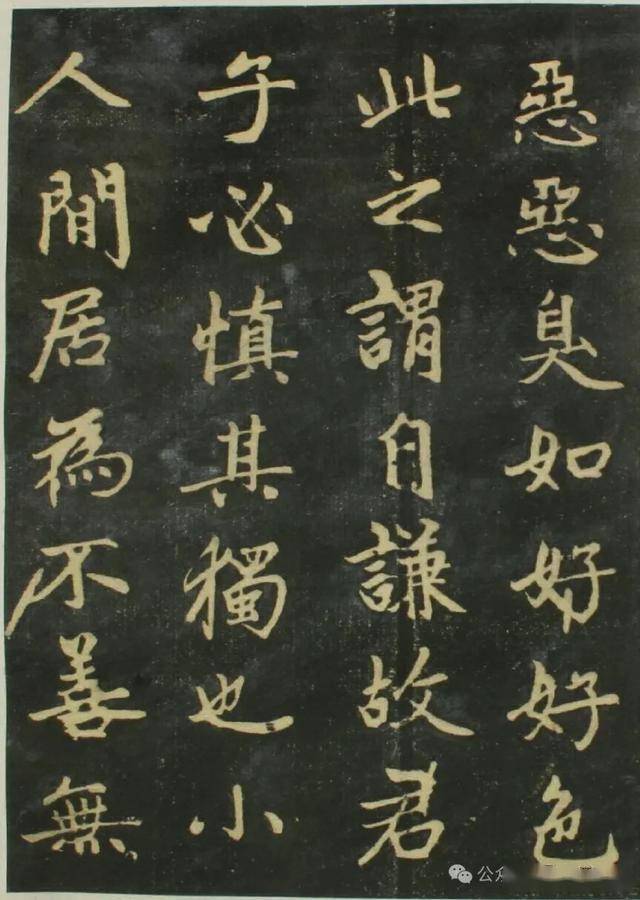 惡惡臭如好好色
此之謂自謙故君
子必慎其獨也小
人閒居為不善無
公众